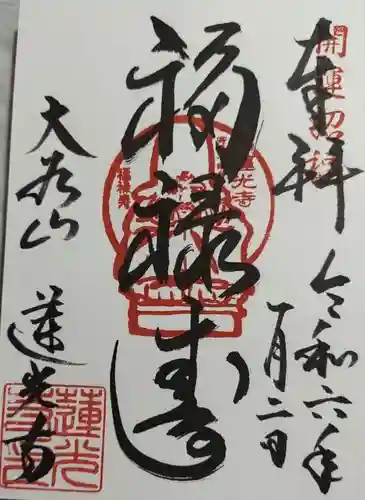 奉拝
開運招福
令和六年
一月二日
福禄寿
大谷山
蓮光寺
蓮光寺